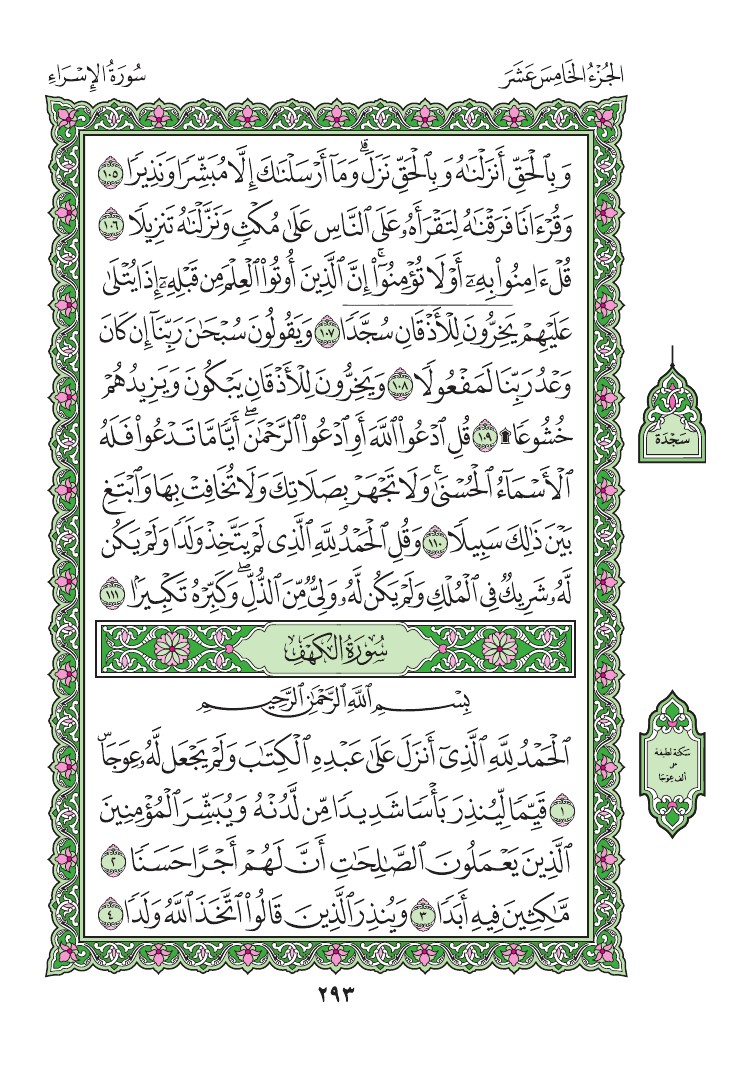 الجُزْءُ الخَامِسَ عَشَرَ
سُورَةُ الإِسْرَاءِ
وَبِٱلْحَقِّ أَنزَلْنَٰهُ وَبِٱلْحَقِّ نَزَلَۗ وَمَآ أَرْسَلْنَٰكَ إِلَّا مُبَشِّرًا وَنَذِيرًا ١٠٥
وَقُرْءَانًا فَرَقْنَٰهُ لِتَقْرَأَهُۥ عَلَى ٱلنَّاسِ عَلَىٰ مُكْثٍ وَنَزَّلْنَٰهُ تَنزِيلًا ١٠٦
قُلْ ءَامِنُوا۟ بِهِۦٓ أَوْ لَا تُؤْمِنُوٓا۟ۚ إِنَّ ٱلَّذِينَ أُوتُوا۟ ٱلْعِلْمَ مِن قَبْلِهِۦٓ إِذَا يُتْلَىٰ
عَلَيْهِمْ يَخِرُّونَ لِلْأَذْقَانِ سُجَّدًا ١٠٧ وَيَقُولُونَ سُبْحَٰنَ رَبِّنَآ إِن كَانَ
وَعْدُ رَبِّنَا لَمَفْعُولًا ١٠٨ وَيَخِرُّونَ لِلْأَذْقَانِ يَبْكُونَ وَيَزِيدُهُمْ
خُشُوعًا ۩ ١٠٩ قُلِ ٱدْعُوا۟ ٱللَّهَ أَوِ ٱدْعُوا۟ ٱلرَّحْمَٰنَۖ أَيًّا مَّا تَدْعُوا۟ فَلَهُ
ٱلْأَسْمَآءُ ٱلْحُسْنَىٰۚ وَلَا تَجْهَرْ بِصَلَاتِكَ وَلَا تُخَافِتْ بِهَا وَٱبْتَغِ
بَيْنَ ذَٰلِكَ سَبِيلًا ١١٠ وَقُلِ ٱلْحَمْدُ لِلَّهِ ٱلَّذِى لَمْ يَتَّخِذْ وَلَدًا وَلَمْ يَكُن
لَّهُۥ شَرِيكٌ فِى ٱلْمُلْكِ وَلَمْ يَكُن لَّهُۥ وَلِىٌّ مِّنَ ٱلذُّلِّۖ وَكَبِّرْهُ تَكْبِيرًۢا ١١١
سُورَةُ الكَهْفِ
بِسْمِ ٱللَّهِ ٱلرَّحْمَٰنِ ٱلرَّحِيمِ
ٱلْحَمْدُ لِلَّهِ ٱلَّذِىٓ أَنزَلَ عَلَىٰ عَبْدِهِ ٱلْكِتَٰبَ وَلَمْ يَجْعَل لَّهُۥ عِوَجَاۜ
١ قَيِّمًا لِّيُنذِرَ بَأْسًا شَدِيدًا مِّن لَّدُنْهُ وَيُبَشِّرَ ٱلْمُؤْمِنِينَ
ٱلَّذِينَ يَعْمَلُونَ ٱلصَّٰلِحَٰتِ أَنَّ لَهُمْ أَجْرًا حَسَنًا ٢
مَّٰكِثِينَ فِيهِ أَبَدًا ٣ وَيُنذِرَ ٱلَّذِينَ قَالُوا۟ ٱتَّخَذَ ٱللَّهُ وَلَدًا ٤
سَجْدَة
سكتة لطيفة
على
ألف عوجا
٢٩٣